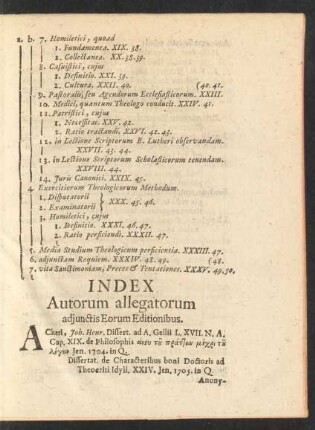 2. b. 7. Homiletici, quoad
1. Fundamenta. XIX. 38.
2. Collectanea. XX. 38. 39.
8. Casuistici, cujus
1. Definitio. XXI. 39.
2. Cultura. XXII. 40. (40. 41.
9. Pastoralis, seu Agendorum Ecclesiasticorum. XXIII.
10. Medici, quantum Theologo conducit. XXIV. 41.
11. Patristici, cujus
1. Necessitas. XXV. 42.
2. Ratio tractandi. XXVI. 42. 43.
12. in Lectione Scriptorum B. Lutheri observandam.
XXVII. 43. 44.
13. in Lectione Scriptorum Scholasticorum tenendam.
XXVIII. 44.
14. Juris Canonici. XXIX. 45.
4. Exercitiorum Theologicorum Methodum.
1. Disputatorii
2. Examinatorii } XXX. 45. 46.
3. Homiletici, cujus
1. Definitio. XXXI. 46. 47.
2. Ratio perficiendi. XXXII. 47.
5. Media Studium Theologicum perficientia. XXXIII. 47.
6. adjunctam Requiem. XXXIV. 48. 49. (48.
7. vitæ Sanctimoniam; Preces & Tentationes. XXXV. 49. 50.
INDEX
Autorum allegatorum
adjunctis Eorum Editionibus.
Ackeri, Joh. Henr. Dissert. ad A. Gellii L. XVII. N. A.
Cap. XIX. de Philosophis ἄνευ τοῦ πράττειν μέχρι τοῦ
λέγειν Jen. 1704. in Q.
Dissertat. de Characteribus boni Doctoris ad
Theocriti Idyll. XXIV. Jen. 1705. in Q.
Anony-